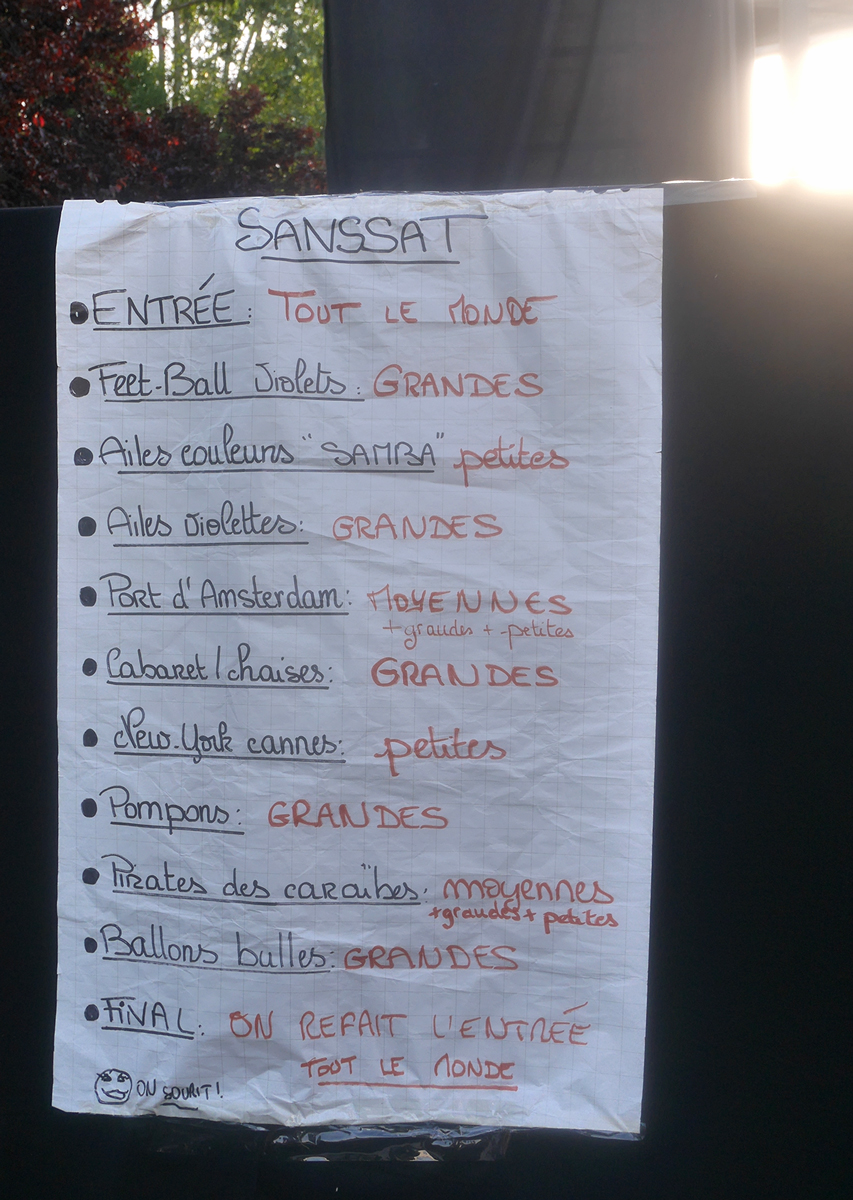 SANSSAT
• ENTRÉE: TOUT LE MONDE
• Feet-Ball Violets: GRANDES
• Ailes couleurs "SAMBA" petites
• Ailes Violettes: GRANDES
• Port d'Amsterdam: MOYENNES
+ grandes + petites
• Cabaret/chaises: GRANDES
• New-York cannes: petites
• Pompons: GRANDES
• Pirates des caraïbes: moyennes
+ grandes + petites
• Ballons bulles: GRANDES
• FiNAL: ON REFAIT L'ENTRÉE
TOUT LE MONDE
ON SOURIT!